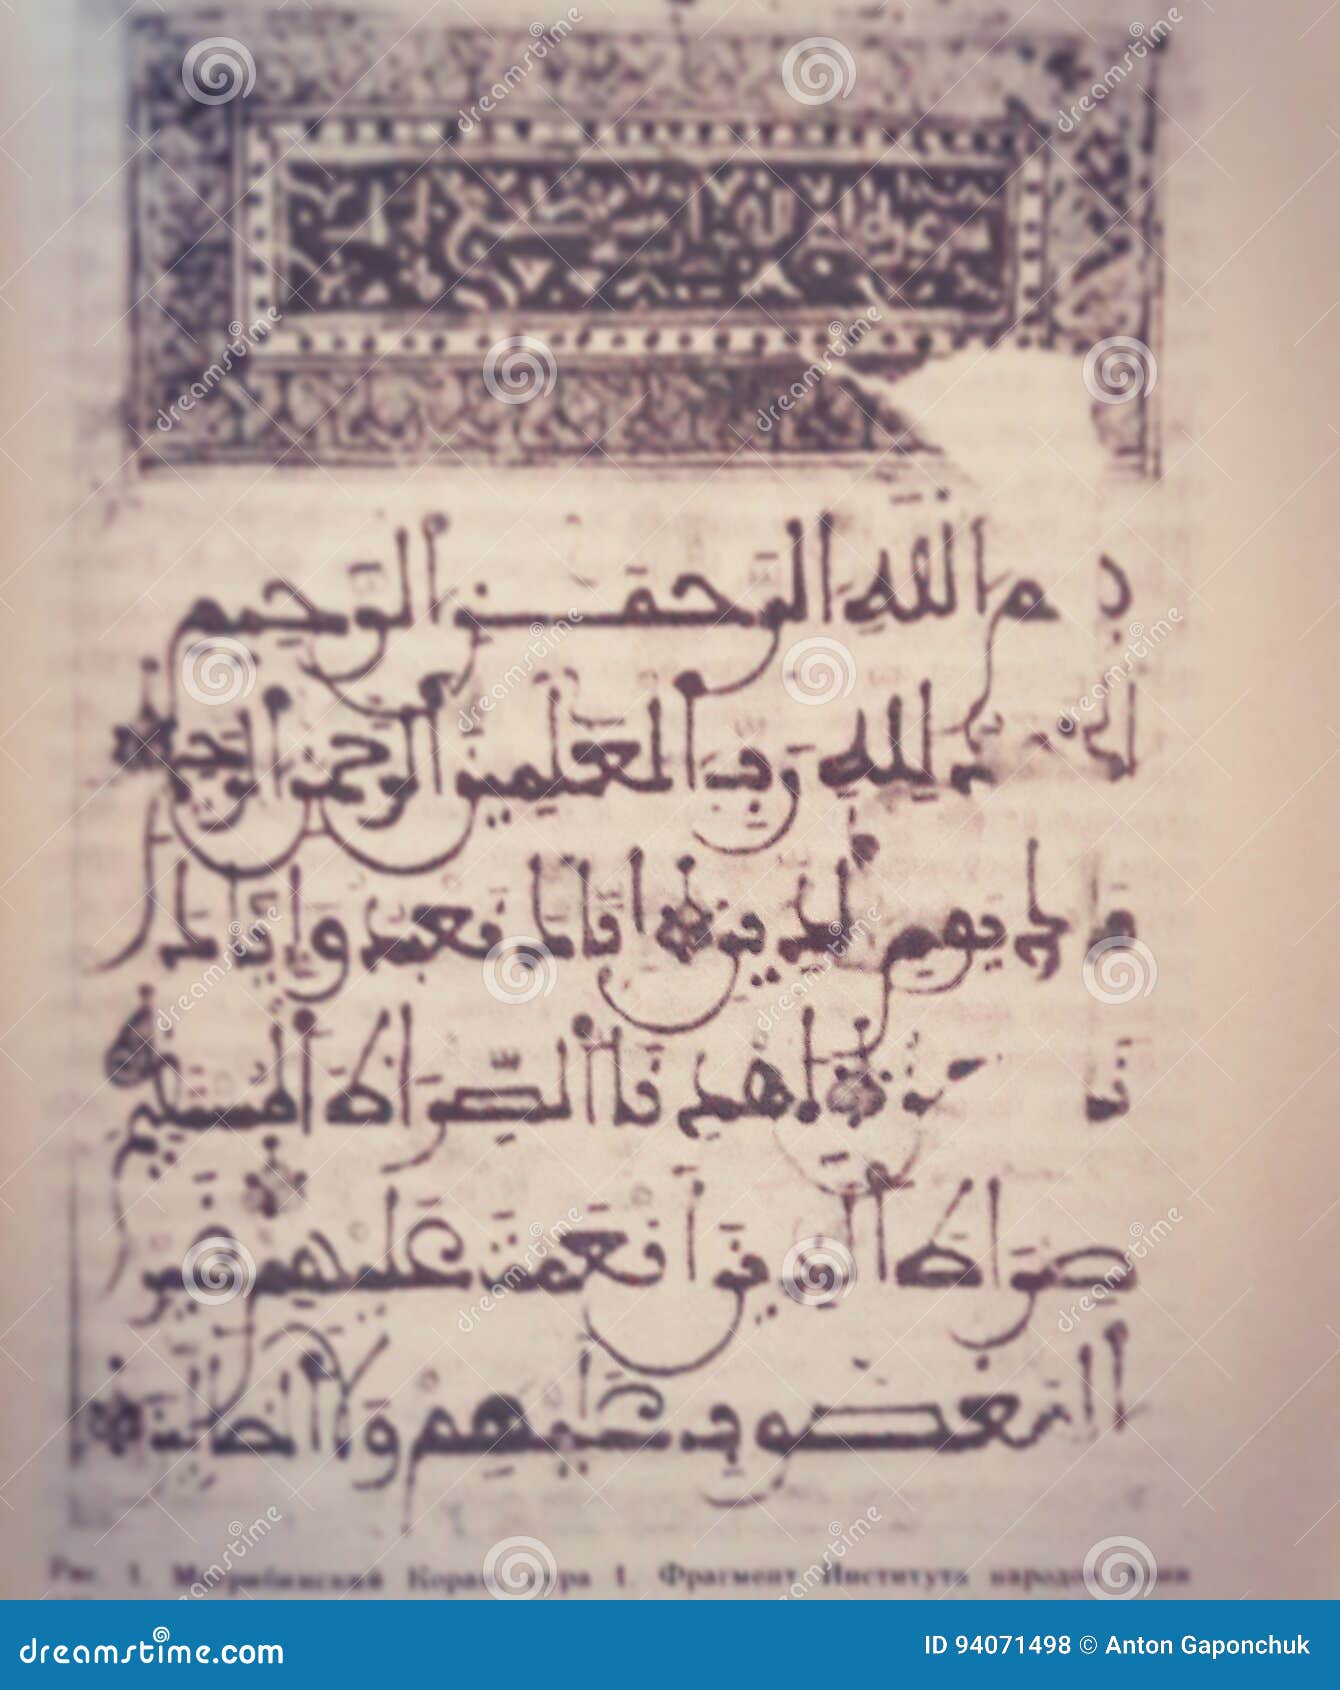 م الله الرحمن الرحيم
لله رب العلمين الرحمن الرحيم
ملك يوم الدين اياك نعبد واياك
نستعين اهدنا الصراط المستقيم
صراط الذين أنعمت عليهم غير
المغضوب عليهم ولا الضالين
Рис. 1. Магрибинский Коран. Сура 1. Фрагмент. Института народов Азии
dreamstime.com
ID 94071498 © Anton Gaponchuk